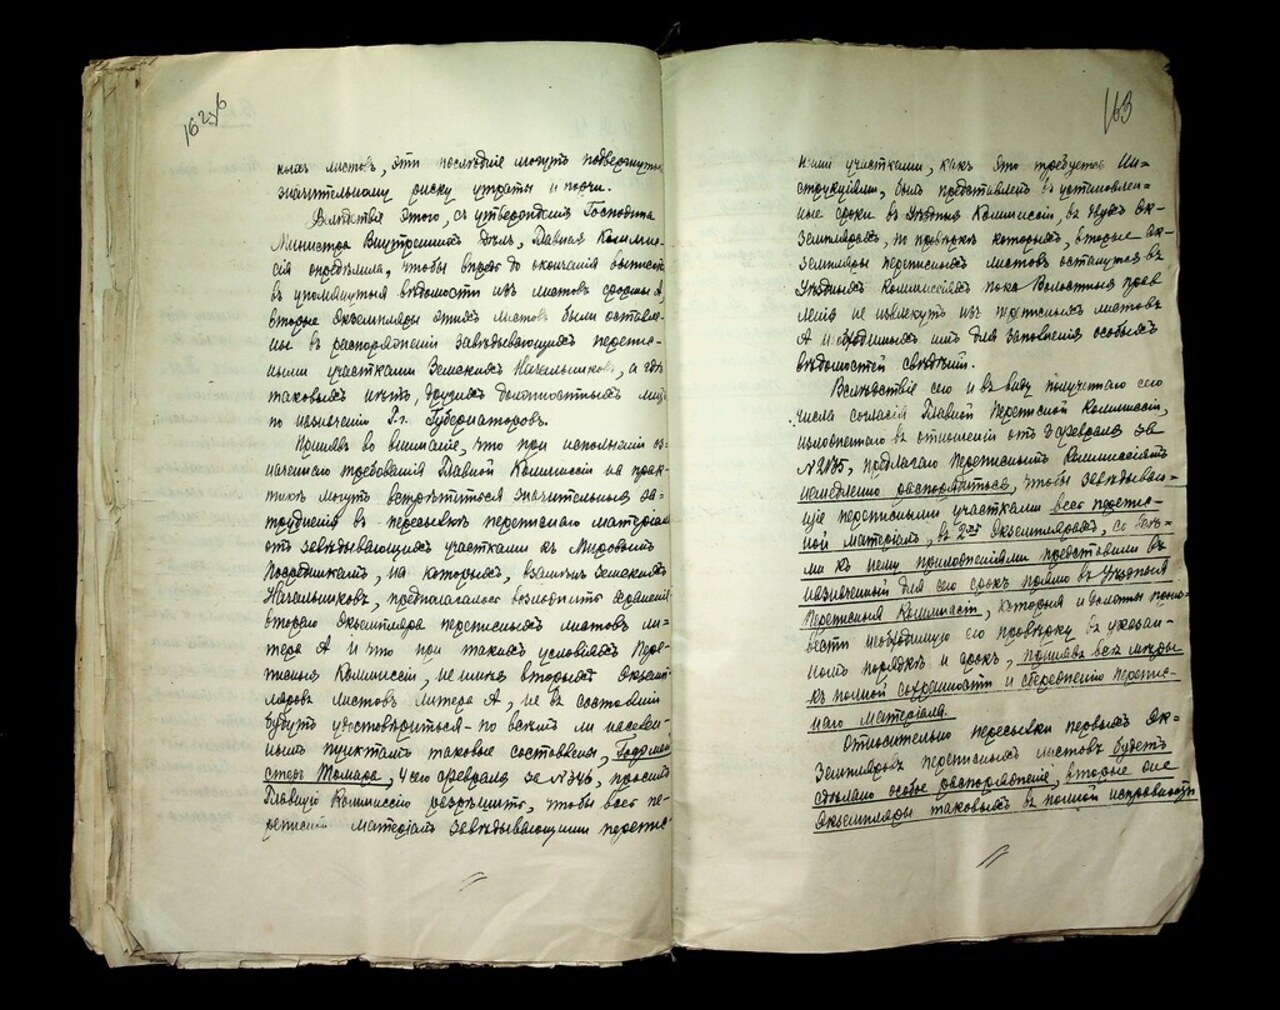 162об
ныхъ листовъ, эти послѣдніе могутъ подвергнуться
значительному риску утраты и порчи.
Вслѣдствіе этого, съ утвержденія Господина
Министра Внутреннихъ Дѣлъ, Главная Коммис-
сія опредѣлила, чтобы впредь до окончанія выписки
въ упомянутыя вѣдомости изъ листовъ формы А,
вторые экземпляры этихъ листовъ были оставле-
ны въ распоряженіи завѣдывающихъ перепис-
ными участками Земскихъ Начальниковъ, а гдѣ
таковыхъ нѣтъ, другихъ должностныхъ лицъ
по назначенію Г.г. Губернаторовъ.
Принявъ во вниманіе, что при исполненіи оз-
наченнаго требованія Главной Коммиссіи на прак-
тикѣ могутъ встрѣтиться значительныя за-
трудненія въ пересылкѣ переписнаго матеріала
отъ завѣдывающихъ участками къ Мировымъ
Посредникамъ, на которыхъ, взамѣнъ Земскихъ
Начальниковъ, предполагалось возложить храненіе
второго экземпляра переписныхъ листовъ ли-
тера А и что при такихъ условіяхъ Пере-
писныя Коммиссіи, не имѣя вторыхъ экземп-
ляровъ листовъ литера А, не въ состояніи
будутъ удостовѣриться - по всѣмъ ли населен-
нымъ пунктамъ таковые составлены, Гофмей
стеръ Томара, 4 сего февраля за №346, просилъ
Главную Коммиссію разрѣшить, чтобы весь пе-
реписной матеріалъ завѣдывающими перепис-
163
ными участками, какъ это требуется Ин-
струкціями, былъ представленъ въ установлен-
ные сроки въ Уѣздныя Коммиссіи, въ двухъ эк-
земплярахъ, по провѣркѣ которыхъ, вторые эк-
земпляры переписныхъ листовъ останутся въ
Уѣздныхъ Коммиссіяхъ пока Волостныя прав
ленія не извлекутъ изъ переписныхъ листовъ
А необходимыхъ имъ для заполненія особыхъ
вѣдомостей свѣдѣній.
Вслѣдствіе сего и въ виду полученнаго сего
числа согласія Главной Переписной Коммиссіи,
изложеннаго въ отношеніи отъ 9 февраля за
№2035, предлагаю Переписнымъ Коммиссіямъ
немедленно распорядиться, чтобы завѣдываю-
щіе переписными участками весь перепис-
ной матеріалъ, въ 2хъ экземплярахъ, со всѣ-
ми къ нему приложеніями представили въ
назначенный для сего срокъ прямо въ Уѣздныя
Переписныя Коммиссіи, которыя и должны произ-
вести необходимую его провѣрку въ указан-
номъ порядкѣ и срокъ, принявъ всѣ мѣры
къ полной сохранности и сбереженію перепис-
наго матеріала.
Относительно пересылки первыхъ эк-
земпляровъ переписныхъ листовъ будетъ
сдѣлано особое распоряженіе, вторые же
экземпляры таковыхъ въ полной исправности